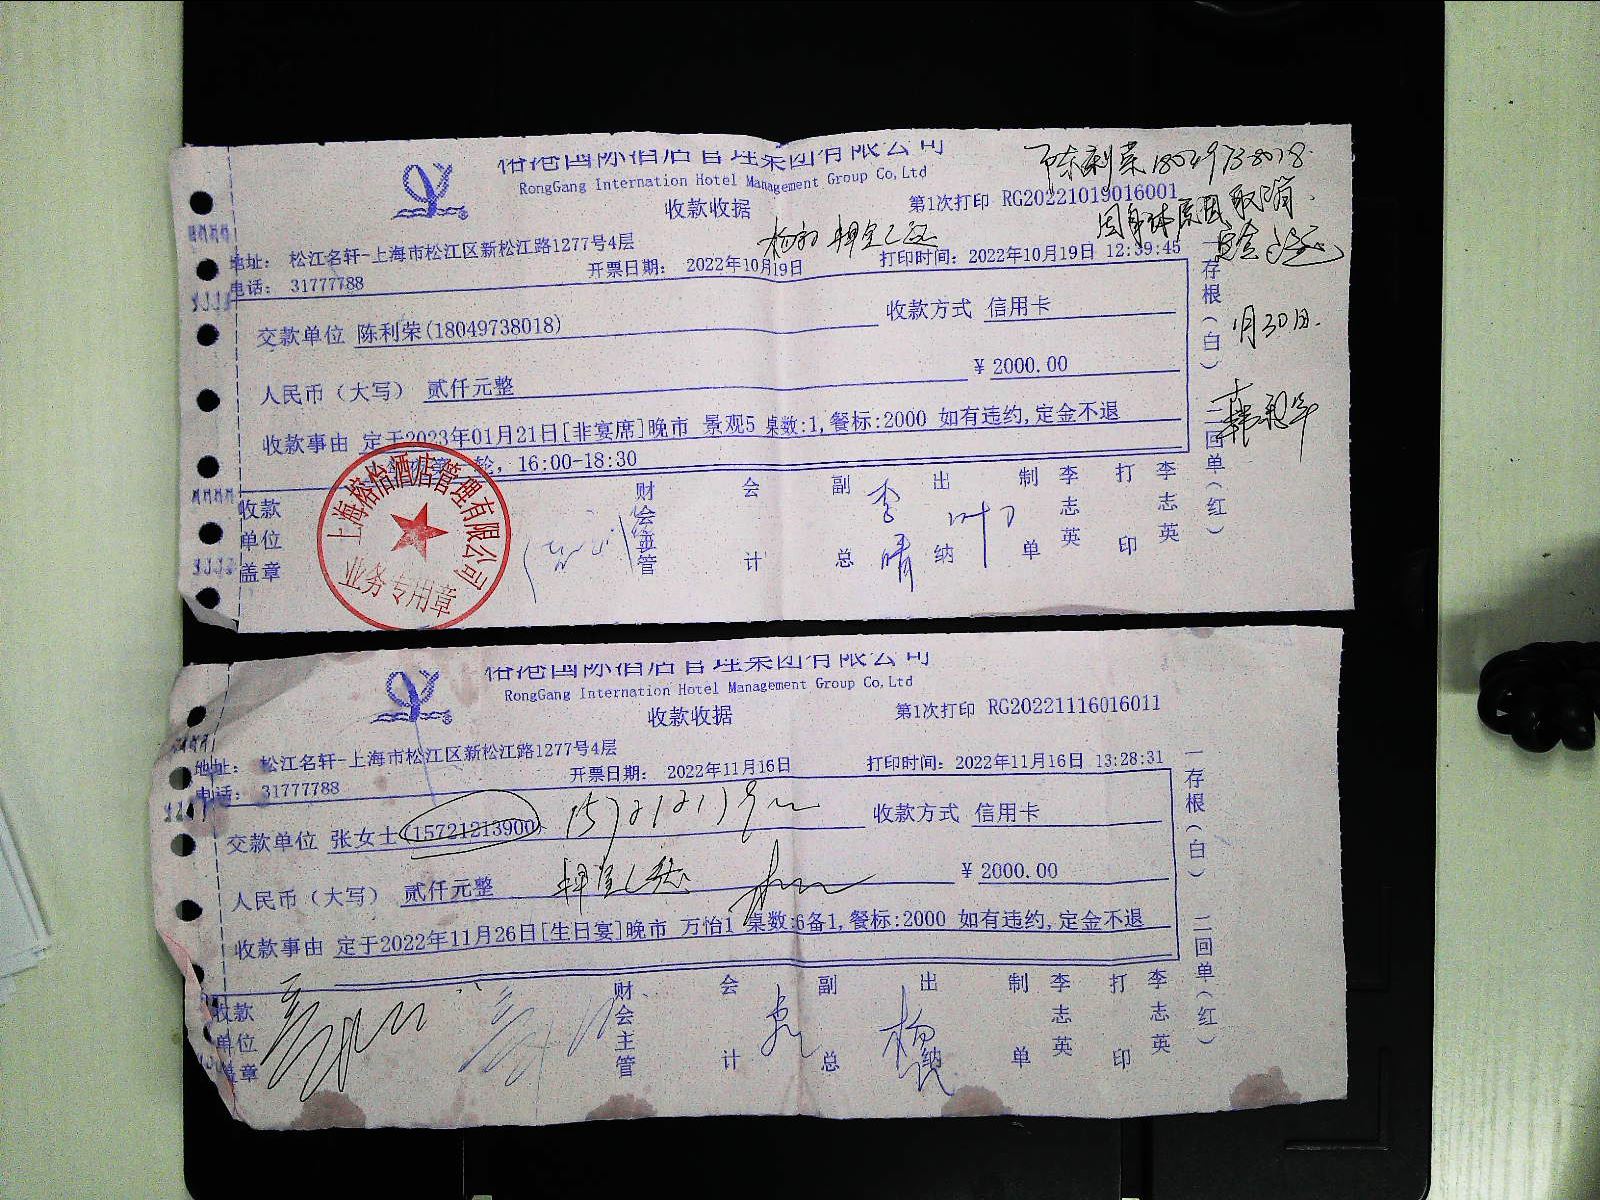 裕港国际酒店管理集团有限公司
RongGang Internation Hotel Management Group Co,Ltd
收款收据
第1次打印 RG20221019016001
陈利荣18049738018.
因身体原因取消.
定金已退
1月30日.
地址: 松江名轩-上海市松江区新松江路1277号4层
电话: 31777788
开票日期: 2022年10月19日
打印时间: 2022年10月19日 12:39:45
交款单位 陈利荣(18049738018)
收款方式 信用卡
人民币(大写) 贰仟元整
¥ 2000.00
收款事由 定于2023年01月21日[非宴席]晚市 景观5 桌数:1,餐标:2000 如有违约,定金不退
轮, 16:00-18:30
收款单位盖章
财会主管
会计
副总
李晴
出纳
叶
制单
李志英
打印
李志英
一存根(白) 二回单(红)
上海榕怡酒店管理有限公司
业务专用章
裕港国际酒店管理集团有限公司
RongGang Internation Hotel Management Group Co,Ltd
收款收据
第1次打印 RG20221116016011
地址: 松江名轩-上海市松江区新松江路1277号4层
电话: 31777788
开票日期: 2022年11月16日
打印时间: 2022年11月16日 13:28:31
交款单位 张女士(15721213900)
收款方式 信用卡
人民币(大写) 贰仟元整
¥ 2000.00
收款事由 定于2022年11月26日[生日宴]晚市 万怡1 桌数:6备1,餐标:2000 如有违约,定金不退
收款单位盖章
财会主管
会计
副总
出纳
制单
李志英
打印
李志英
一存根(白) 二回单(红)